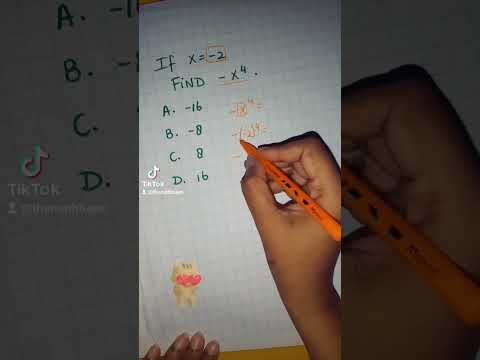 If x = -2
FiND - x⁴ .
A. -16
B. -8
C. 8
D. 16
-(-2)⁴ =
-
TikTok
TikTok